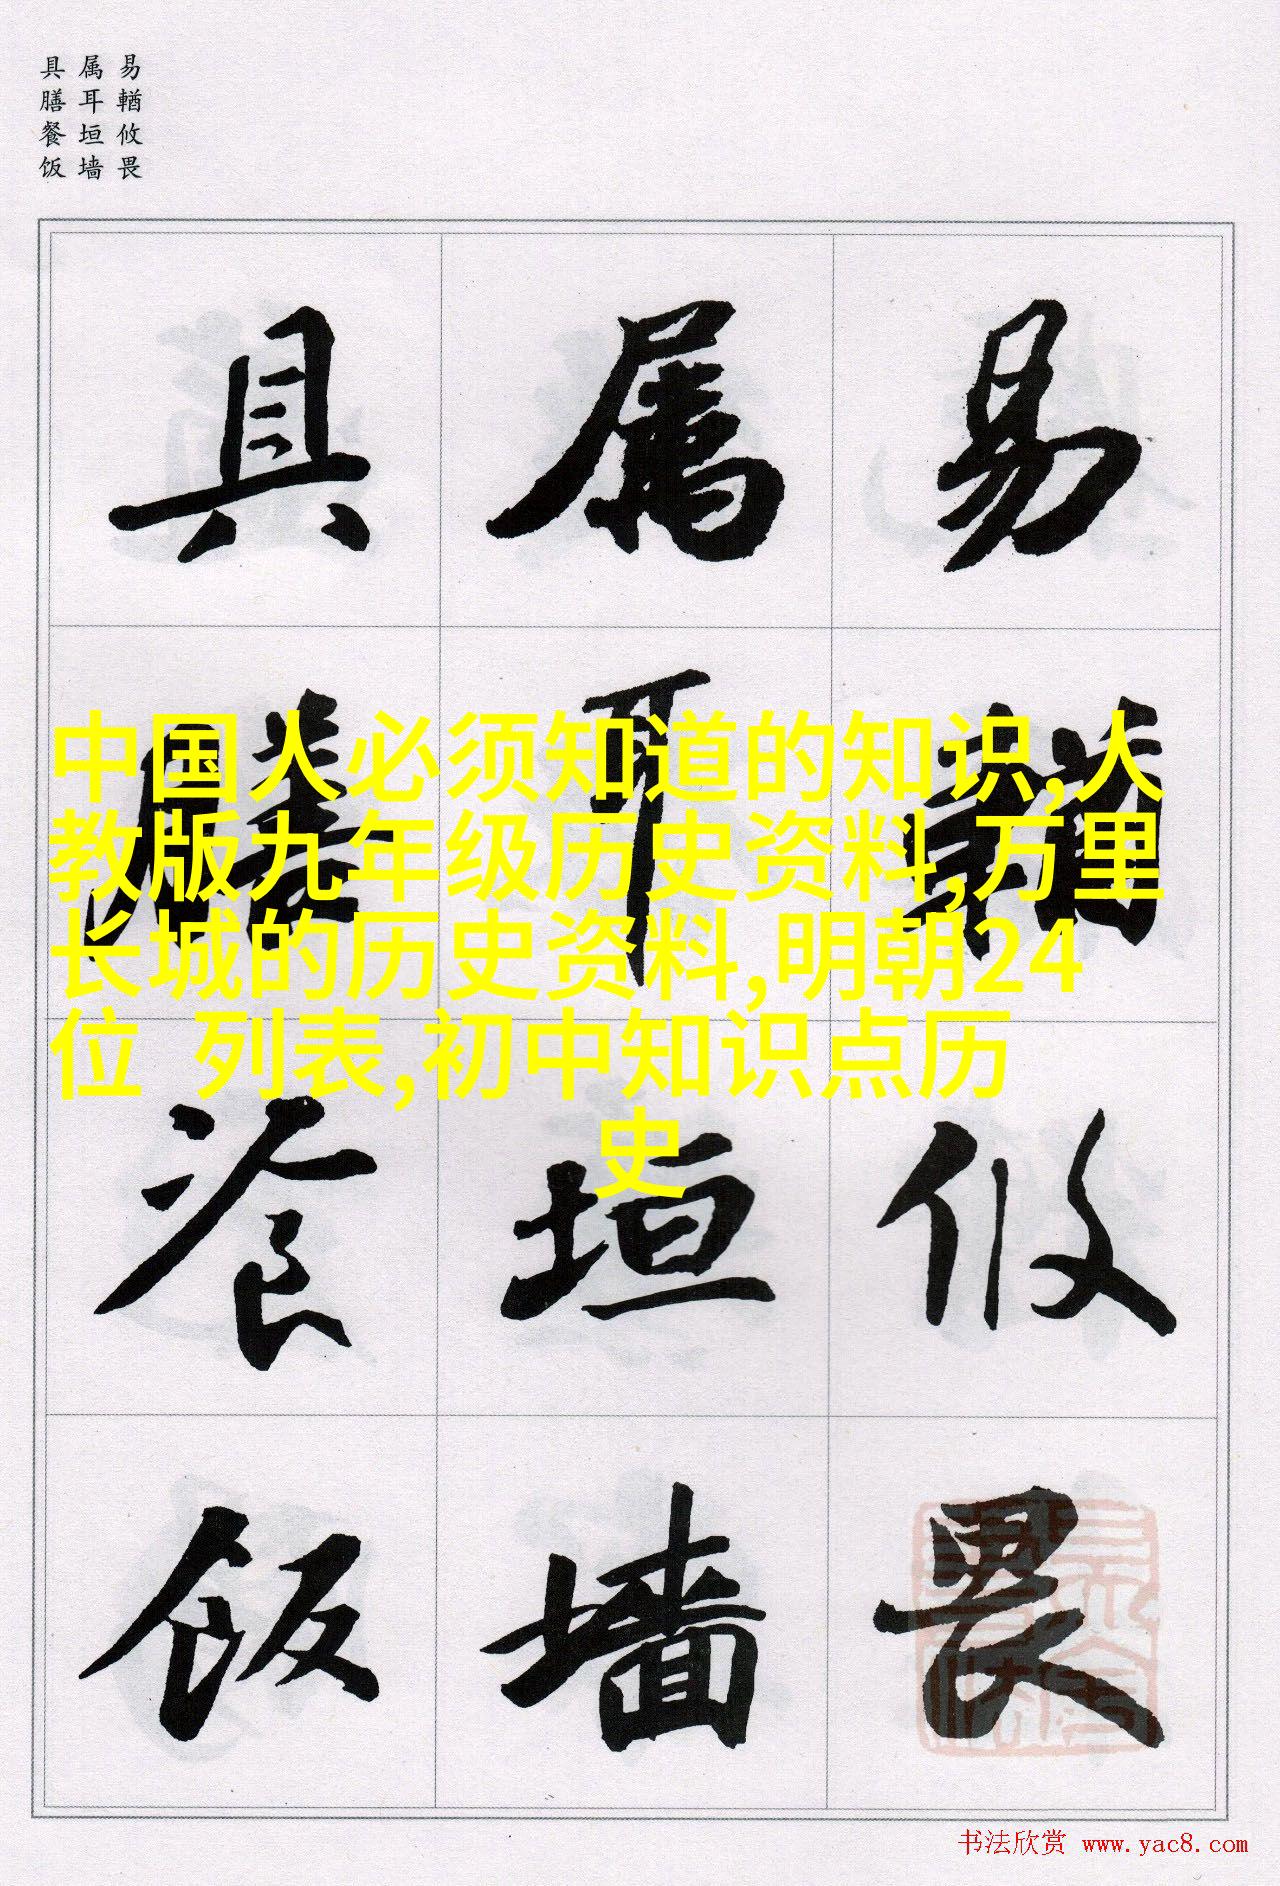 易輶攸畏
属耳垣墙
具膳餐饭
易輶攸畏
属耳垣墙
具膳飡饭
中国人必须知道的知识,人
教版九年级历史资料,万里
长城的历史资料,明朝24
位 列表,初中知识点历
史
书法欣赏 www.yac8.com